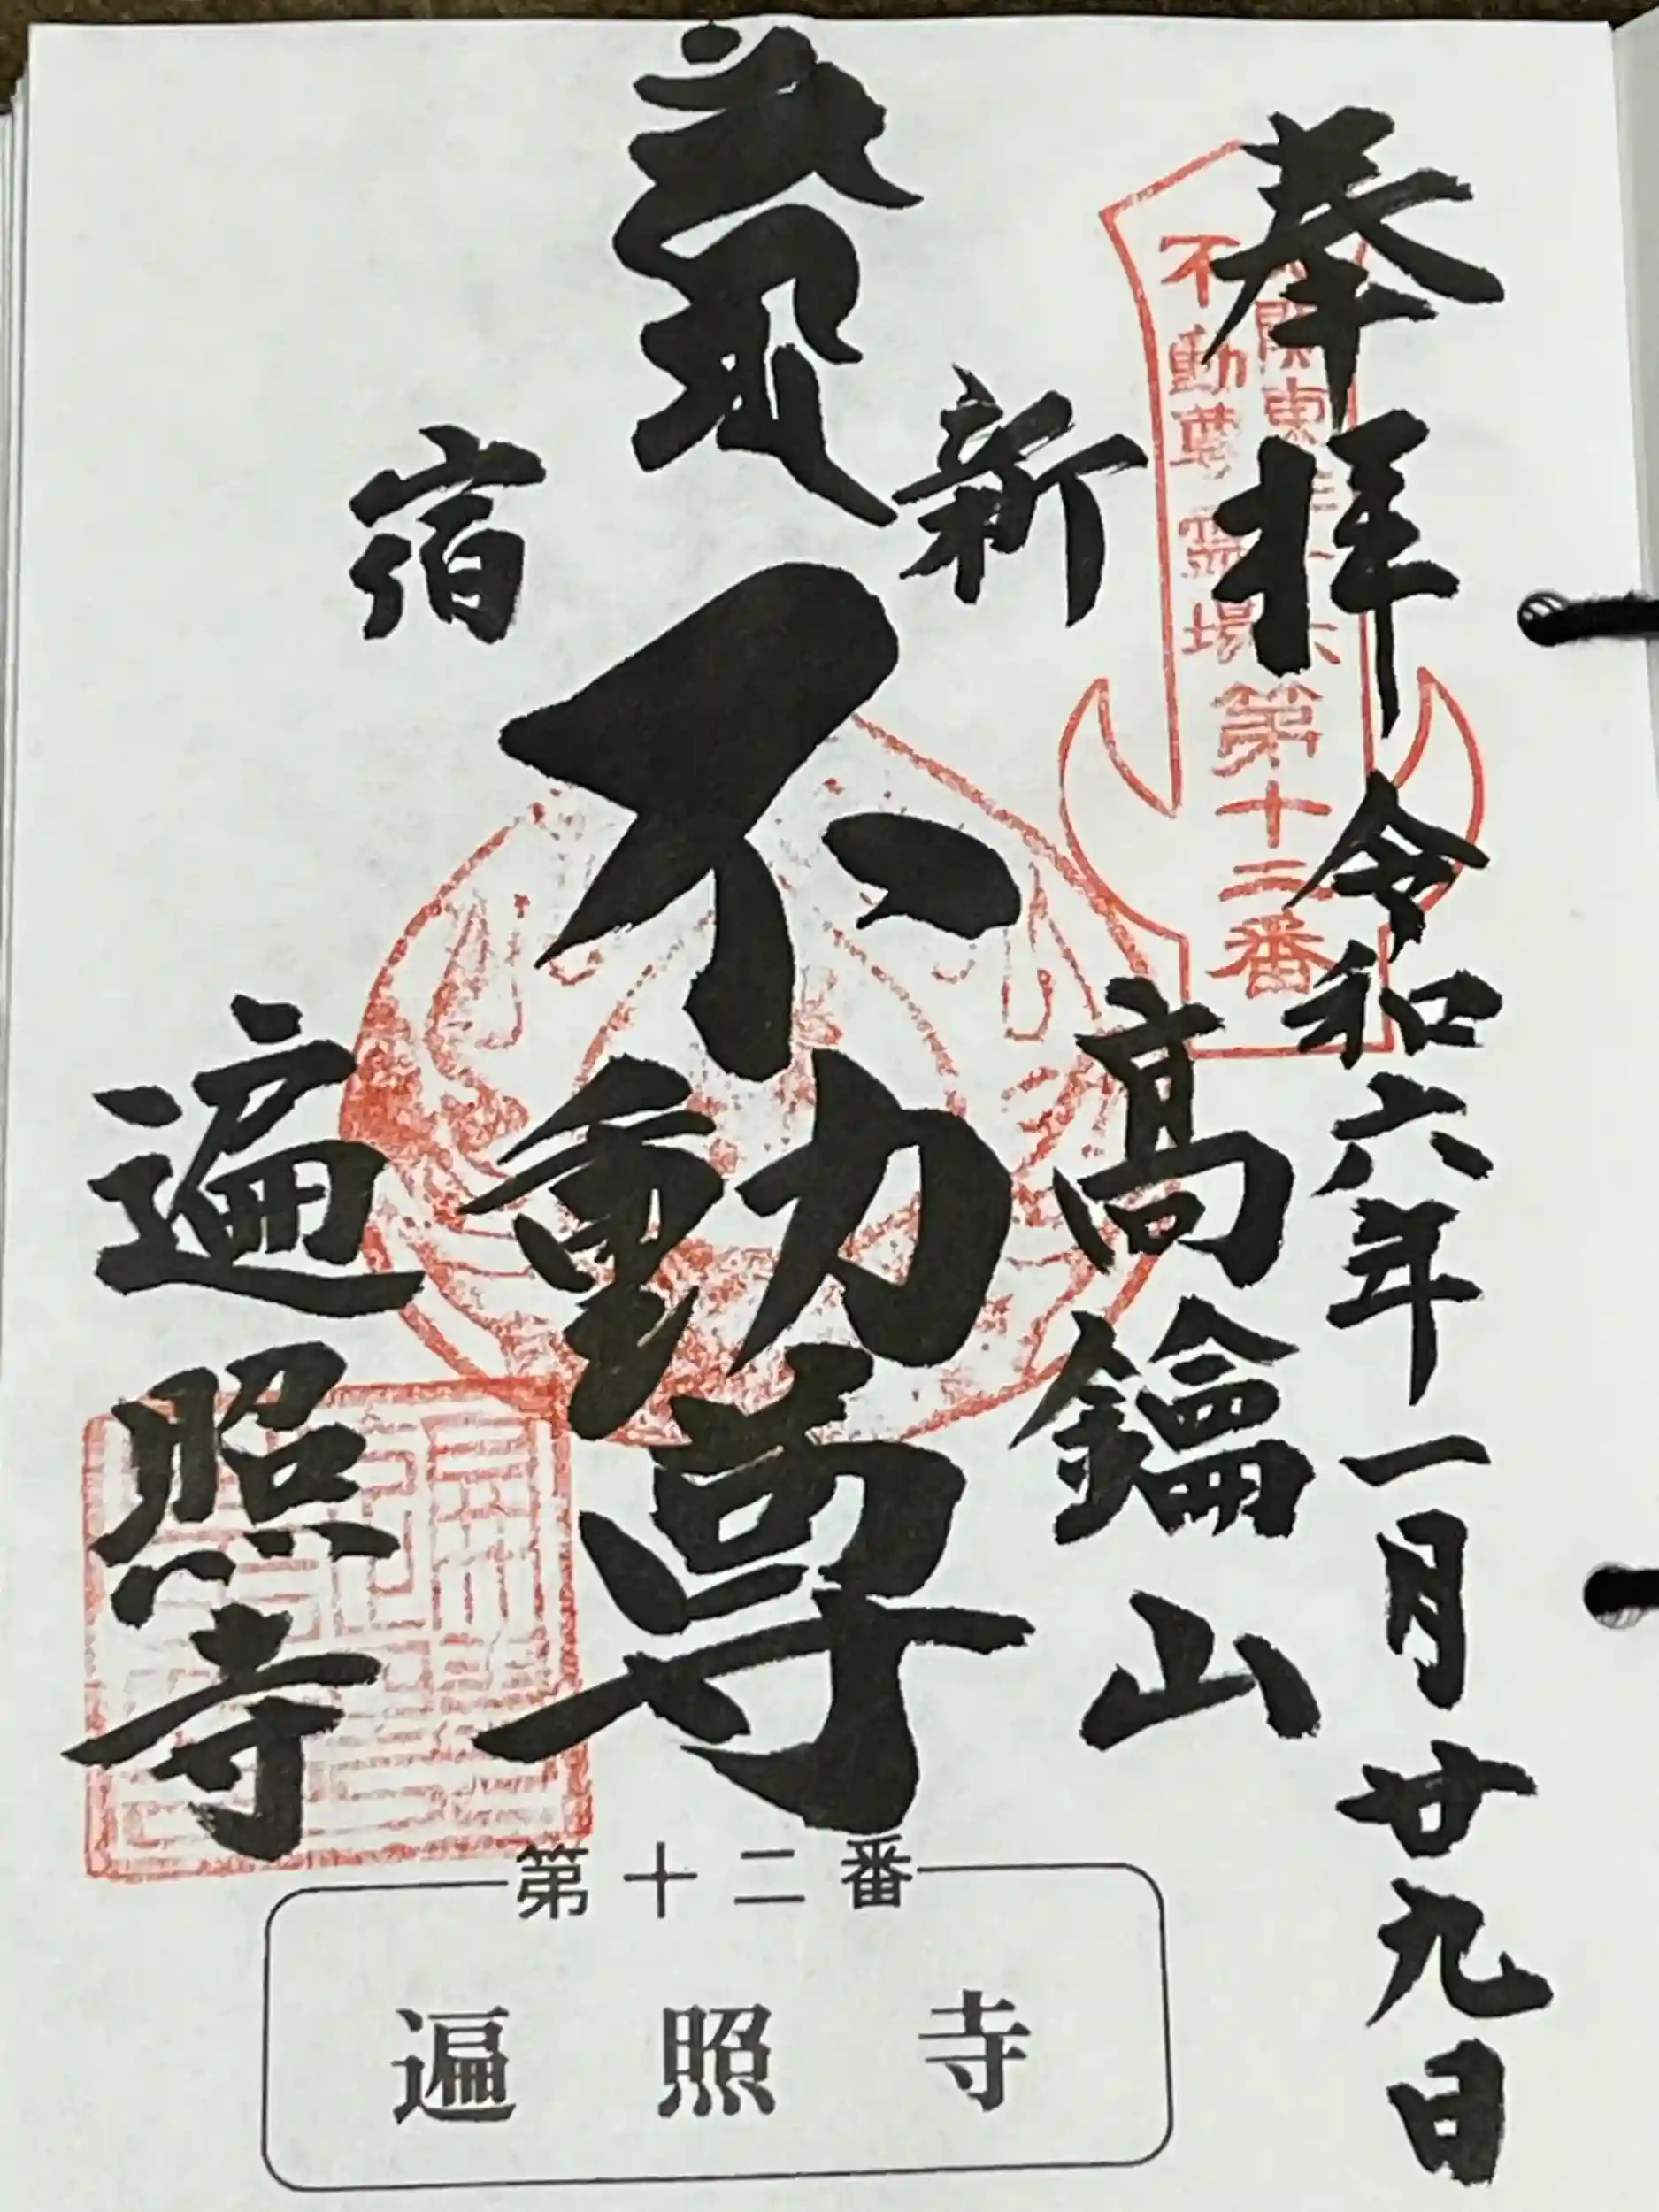 奉拝 令和六年一月廿九日
關東三十六
不動尊霊場
第十二番
高鑰山
新宿
不動尊
遍照寺
第十二番
遍照寺